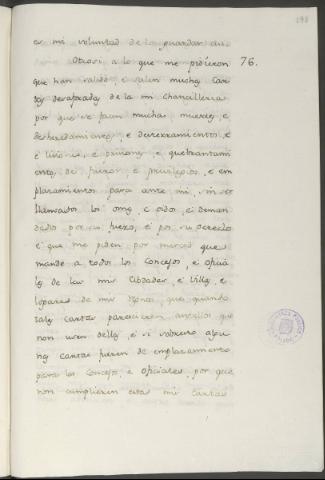 es mi voluntad de lo guardar assi.
Otrosi a lo que me pidieron 76.
que han salido e salen muchas Car
tas desaforadas de la mi Chancilleria
por que se facen muchas muertes, e
desheredamientos, e desterramientos, e
e lisiones, e prisiones, e quebrantami
entos, de fueros, e privilegios, e em
plazamientos para ante mi, sin ser
llamados los omes e oidos, e deman
dados por su fuero, e por su derecho
e que me piden por merced que
mande a todos los Concejos, e oficia
les de las mis Cibdades e Villas, e
logares de mis Regnos que quando
tales cartas parecieren ante ellos que
non usen dellas, e si sobre esto algu
nas cartas fueren de emplazamiento
para los Concejos, e oficiales, por que
non cumplieren estas mis Cartas